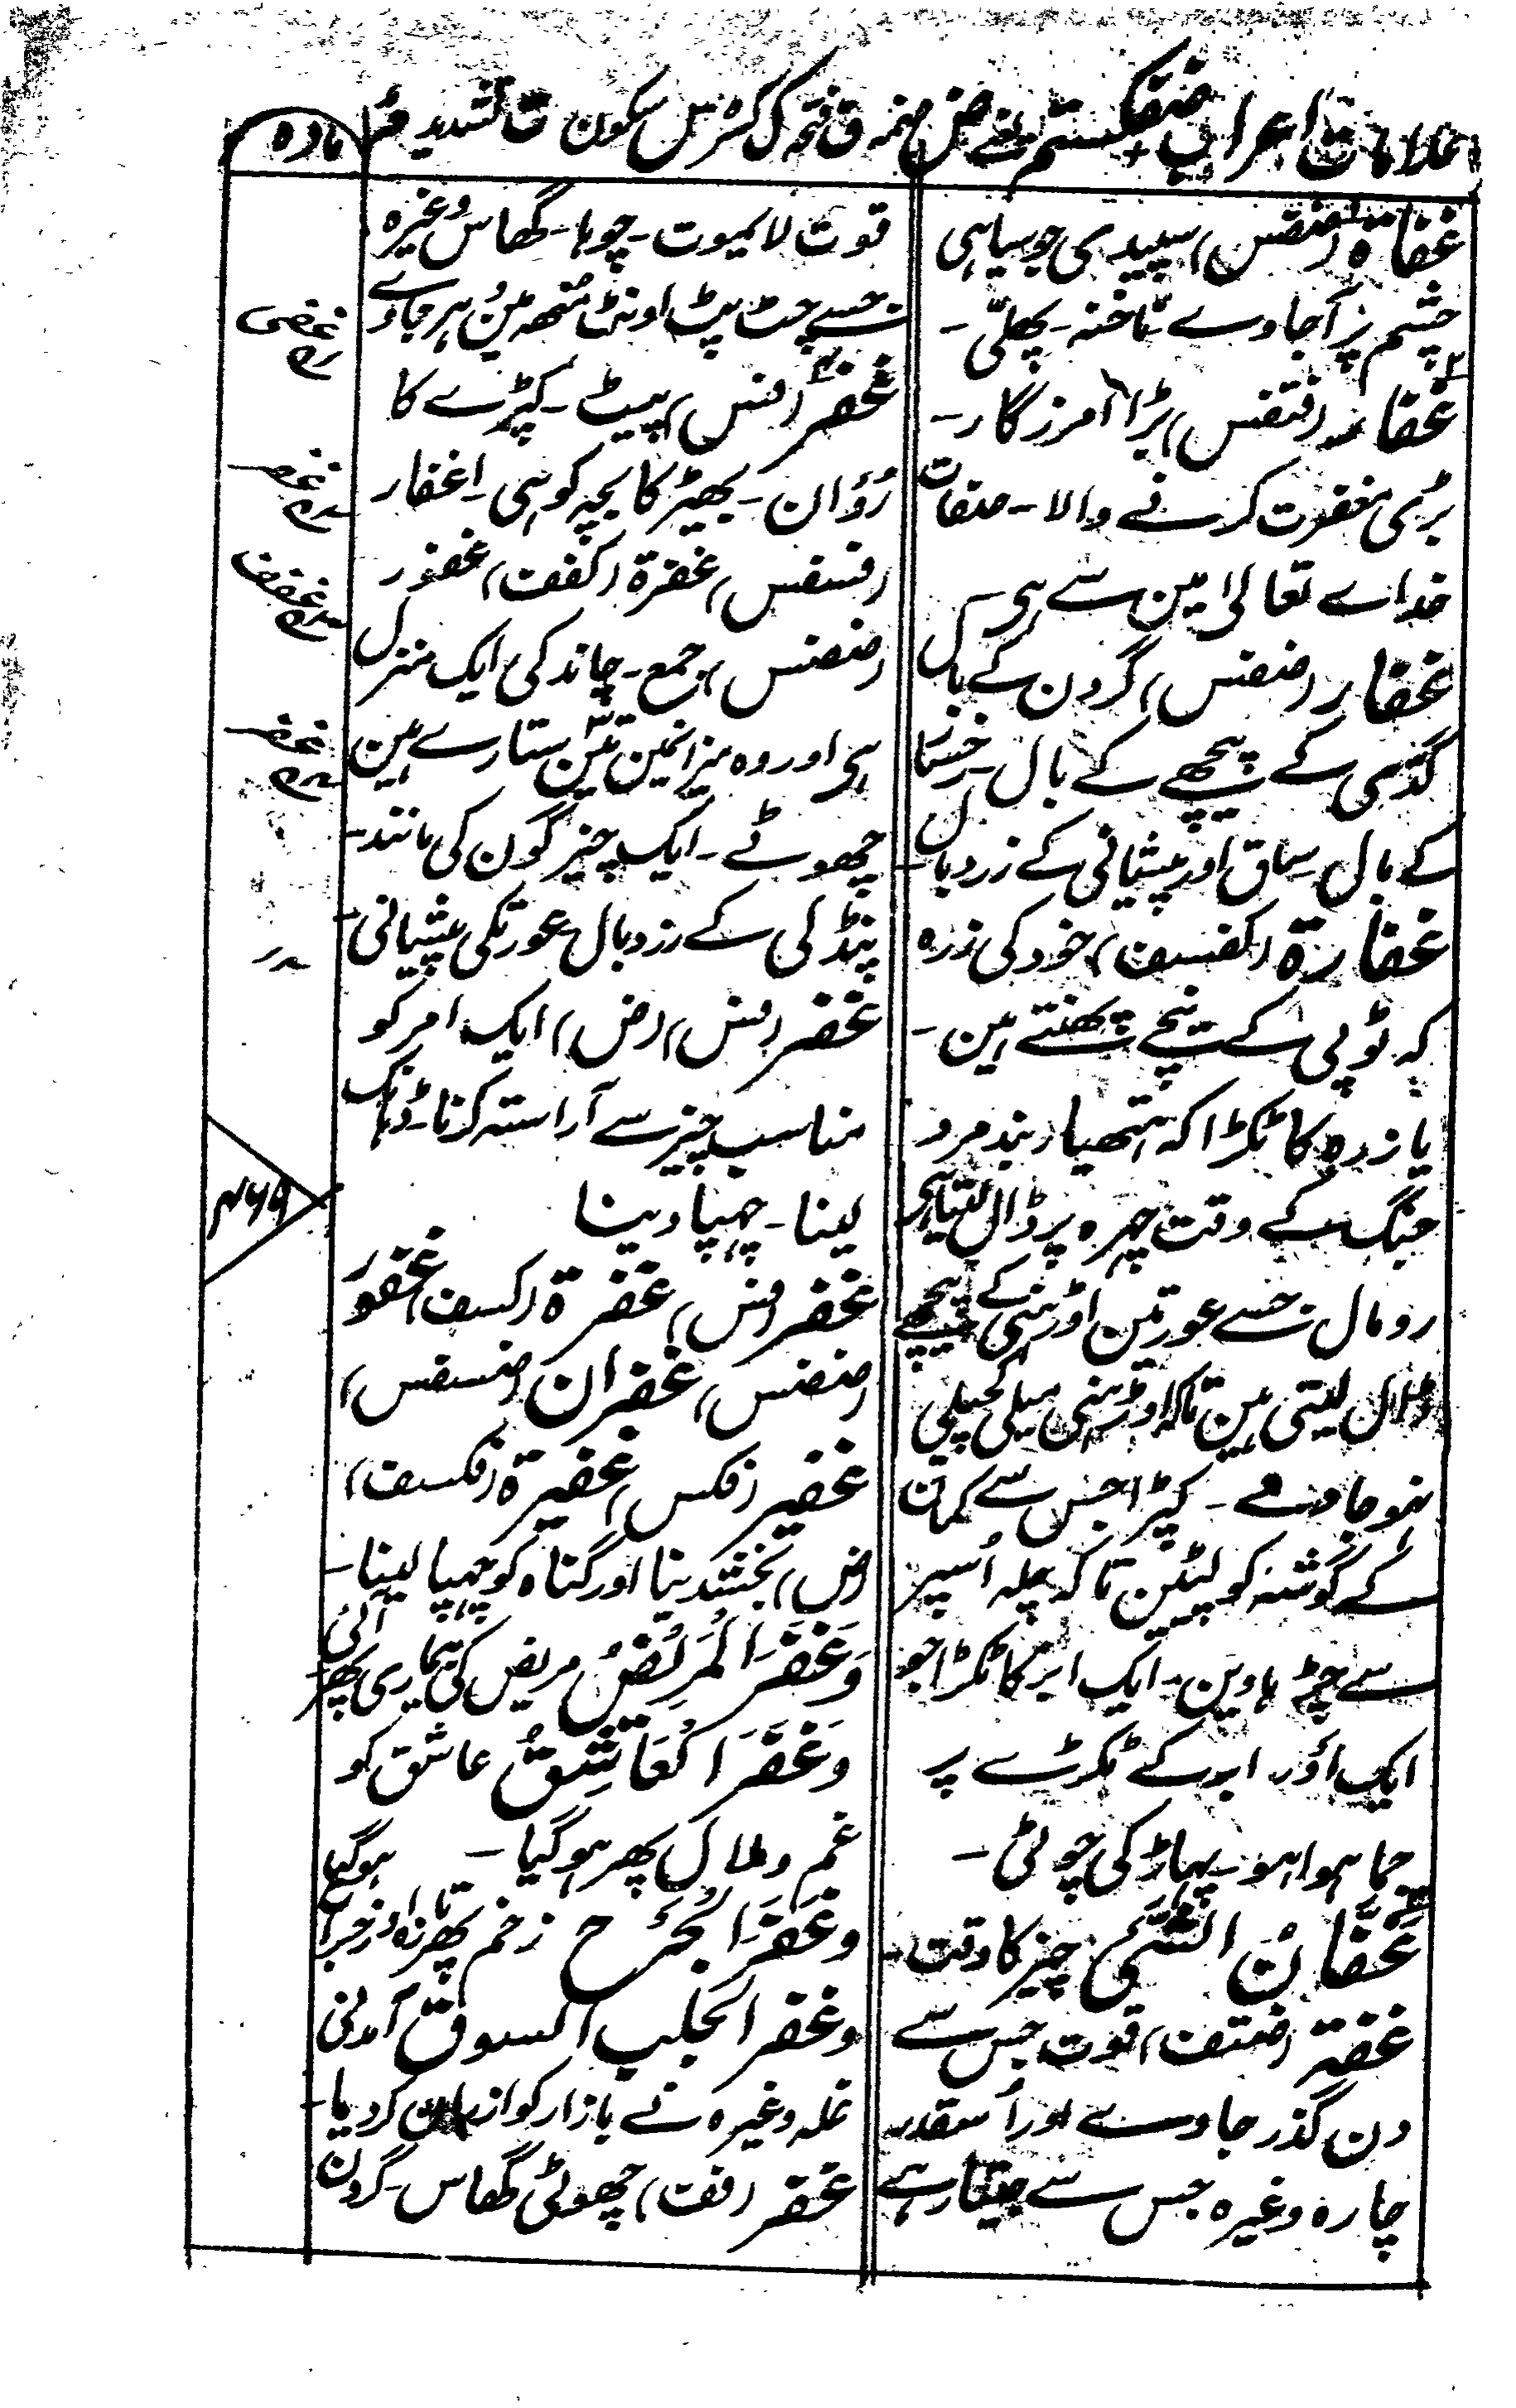 علامات اعراب ضفکستم یعنی ض ضمہ ف فتحہ ک کسرہ س سکون ت تشدید م
مادہ
غفاة (ضفتس) سپیدی جو سیاہی
چشم پر آجاوے۔ ناخنہ۔ پھلّی۔
غفار (فتفس) بڑا آمرزگار۔
بڑی مغفرت کرنے والا۔ صفات
خداے تعالیٰ مین سے ہی۔
غفار (ضفس) گردن کے بال
گدّی کے پیچھے کے بال۔
کے بال ساق اور پیشانی کے زرد بال۔
غفارة (کفسف) خود کی زرہ
کہ ٹوپی کے نیچے پہنتے ہین۔
یا زرہ کا ٹکڑا کہ ہتھیار بند مرد
جنگ کے وقت چہرہ پر ڈال لیتا ہی
رومال جسے عورتین اوڑہنی کے پیچھے
ڈال لیتی ہین تاکہ اوڑہنی میلی کچیلی
نہوجاوے۔ کپڑا جس سے کمان
کے گوشہ کو لپیٹین تاکہ چلہ اُسپر
سے چڑہاوین۔ ایک ابر کا ٹکڑا جو
ایک اَور ابر کے ٹکڑے پر
جما ہوا ہو۔ پہاڑ کی چوٹی۔
غَفَّانُ الشَّیٔ چیز کا وقت۔
غفة (ضتف) قوت جس سے
دن گذر جاوے اور اُسقدر
چارہ وغیرہ جس سے جیتا رہے
قوت لایموت۔ چوہا۔ گھاس وغیرہ
جسے چٹ پٹ اونٹ مُنھ مین بہر جاوے
غفر (فس) پیٹ۔ کپڑے کا
رُؤان۔ بھیڑ کا بچہ کوہی۔ اغفار
غفرة (کففت) غفور
(ضضس) جمع۔ چاند کی ایک منزل
ہی اور وہ میزانمین تین ستارے ہین
چھوٹے۔ ایک چیز گون کی مانند۔
پنڈلی کے زرد بال عورتکی پیشانی۔
غفر (فس) (ض) ایک امر کو
مناسب چیز سے آراستہ کرنا۔ ڈہانک
لینا۔ چھپا دینا
غفر (فس) غفرة (کسف) غفور
(ضضس) غفران (ضسفس)
غفیر (فکس) غفیرة (فکسف)
(ض) بخشدینا اور گناہ کو چھپا لینا۔
وَغَفَرَ الْمَرِیْضُ مریض کی بیماری پھر آئی
وَغَفَرَ الْعَاشِقُ عاشق کو
غم و ملال پھر ہوگیا۔
وغَفَرَ الْجُرْحُ زخم پھر تازہ اور خراب ہوگیا
وغفر الجلب السوق آمدنی
غلہ وغیرہ نے بازار کو ارزان کردیا۔
غفر (فف) چھوٹی گھاس۔ گردن
غفی
رہ
غفر
غفف
غفر
۴۶۵